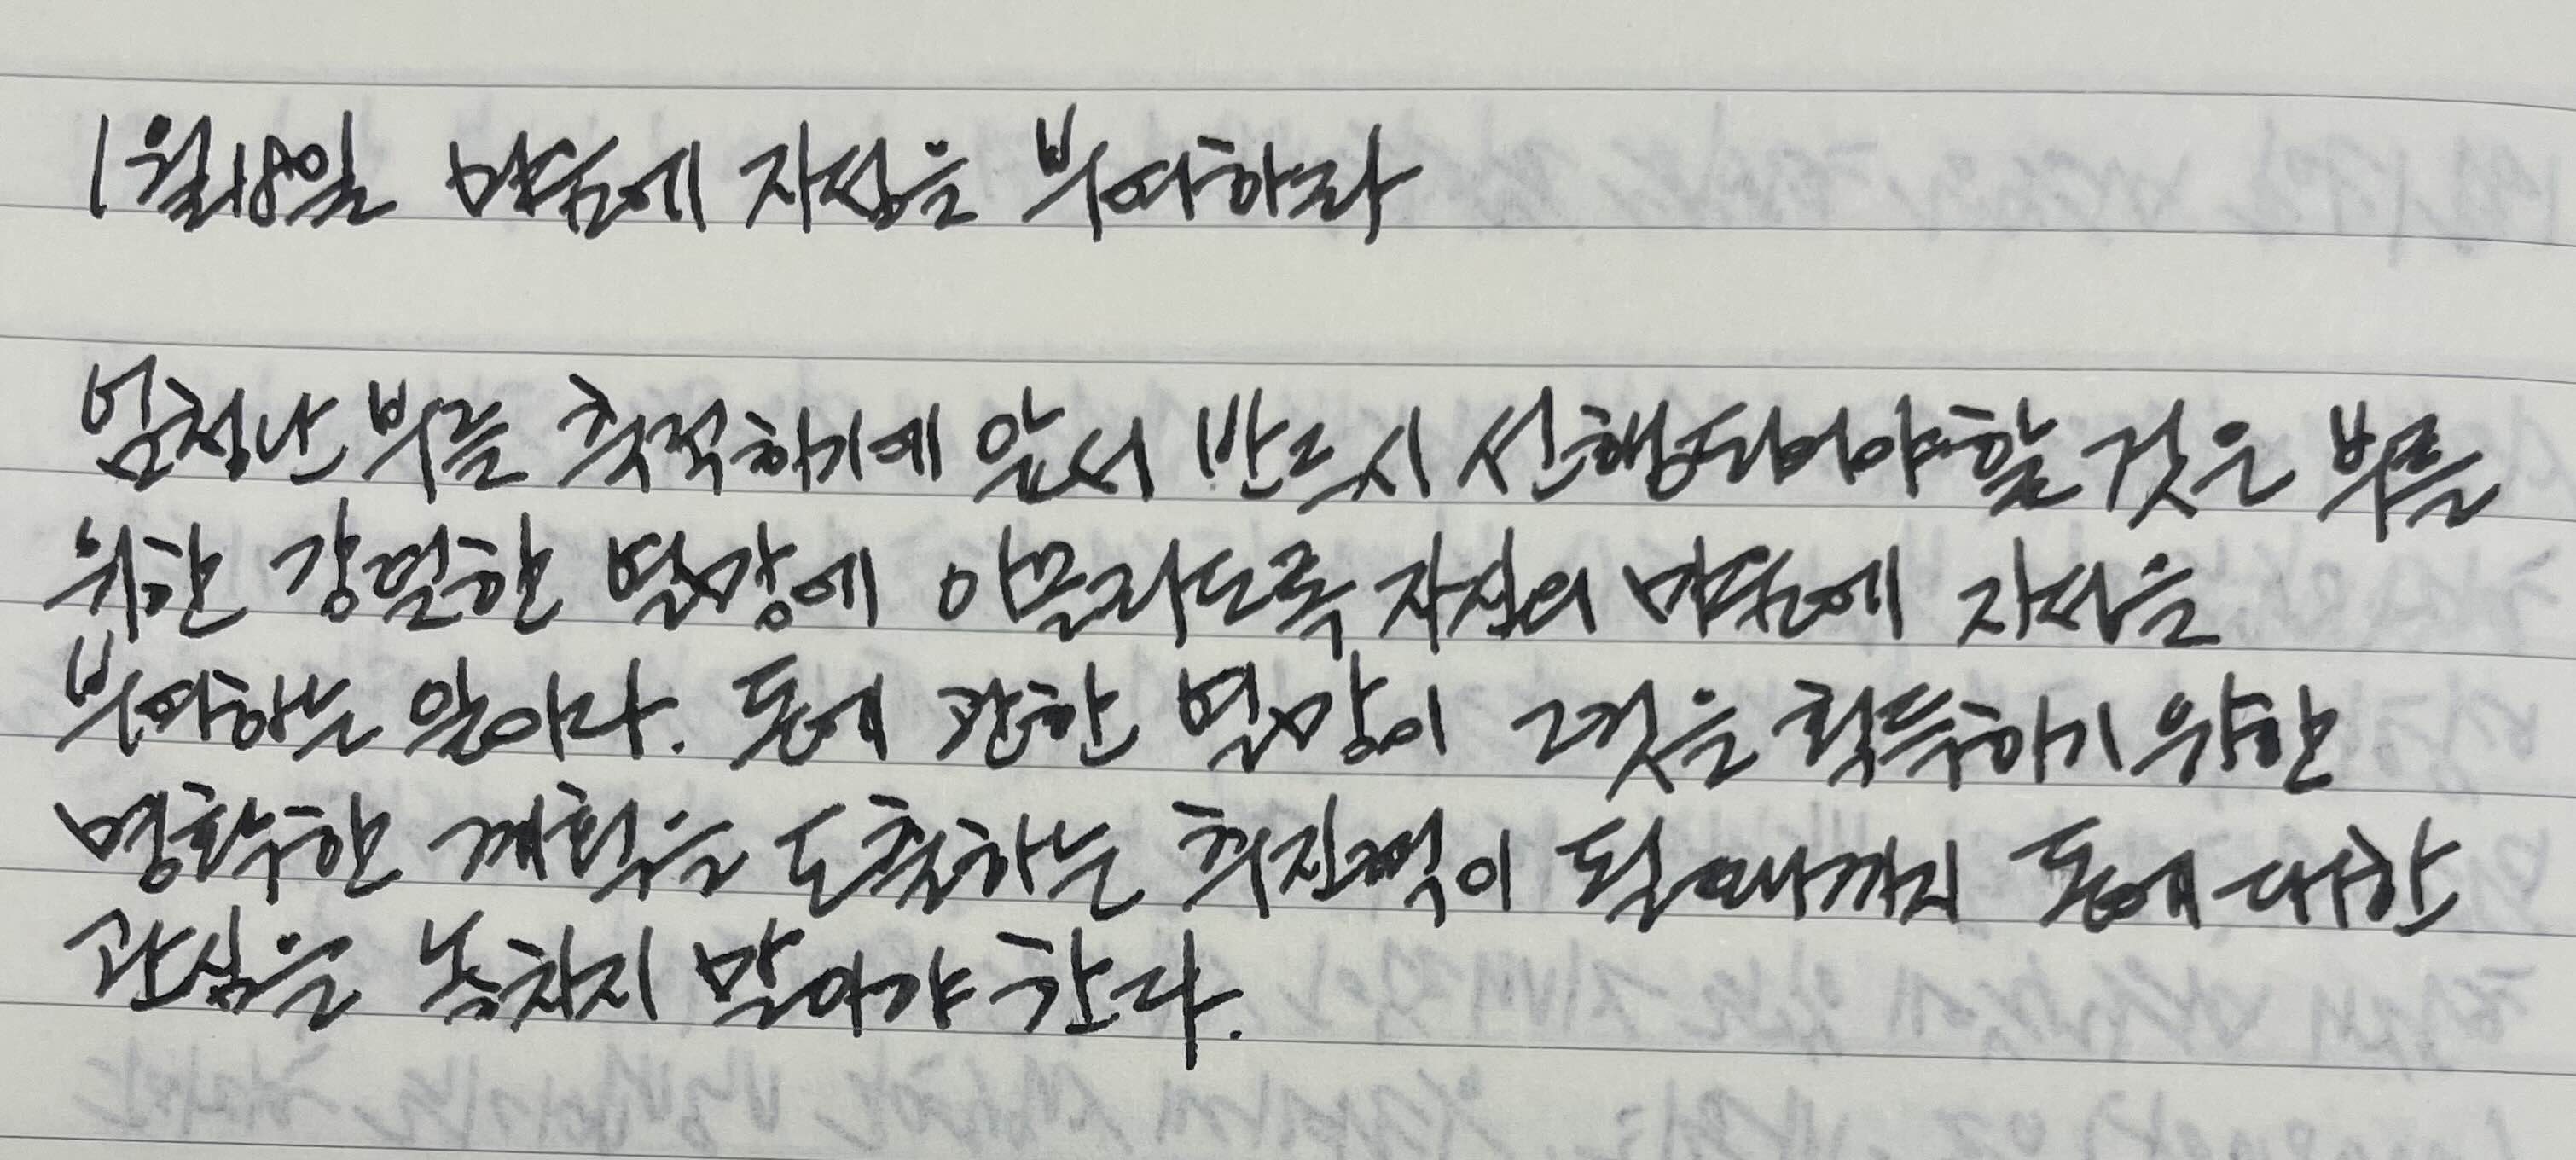 1월18일 마음에 자성을 부여하라
엄청난 부를 축적하기에 앞서 반드시 선행되어야할 것은 부를
위한 강렬한 열망에 이끌리도록 자신의 마음에 자성을
부여하는 일이다. 돈에 관한 열망이 그것을 획득하기 위한
명확한 계획을 도출하는 추진력이 될때까지 돈에 대한
관심을 놓치지 말아야 한다.